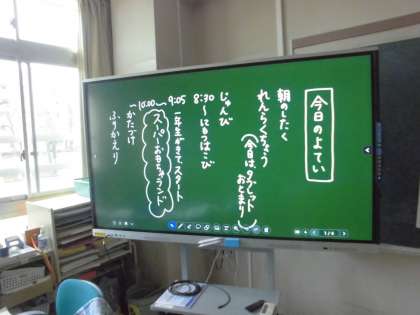 今日のよてい
朝のしたく
れんらくちょう
(今日は、タブレットおとまり)
じゅんび
8:30〜にもつはこび
9:05 一年生がきて、スタート
スーパーおもちゃランド
10:00
かたづけ
ふりかえり